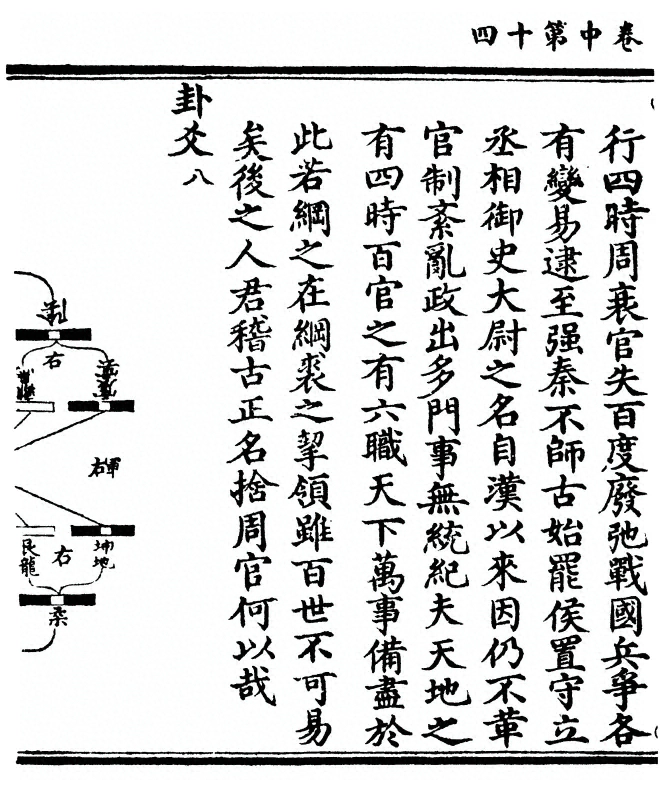 卷中第十四
行四時周衰官失百度廢弛戰國兵爭各
有變易逮至强秦不師古始罷侯置守立
丞相御史大尉之名自漢以來因仍不革
官制紊亂政出多門事無統紀夫天地之
有四時百官之有六職天下萬事備盡於
此若綱之在綱裘之挈領雖百世不可易
矣後之人君稽古正名捨周官何以哉
卦爻八
右
右軍
坤地
右
艮龍